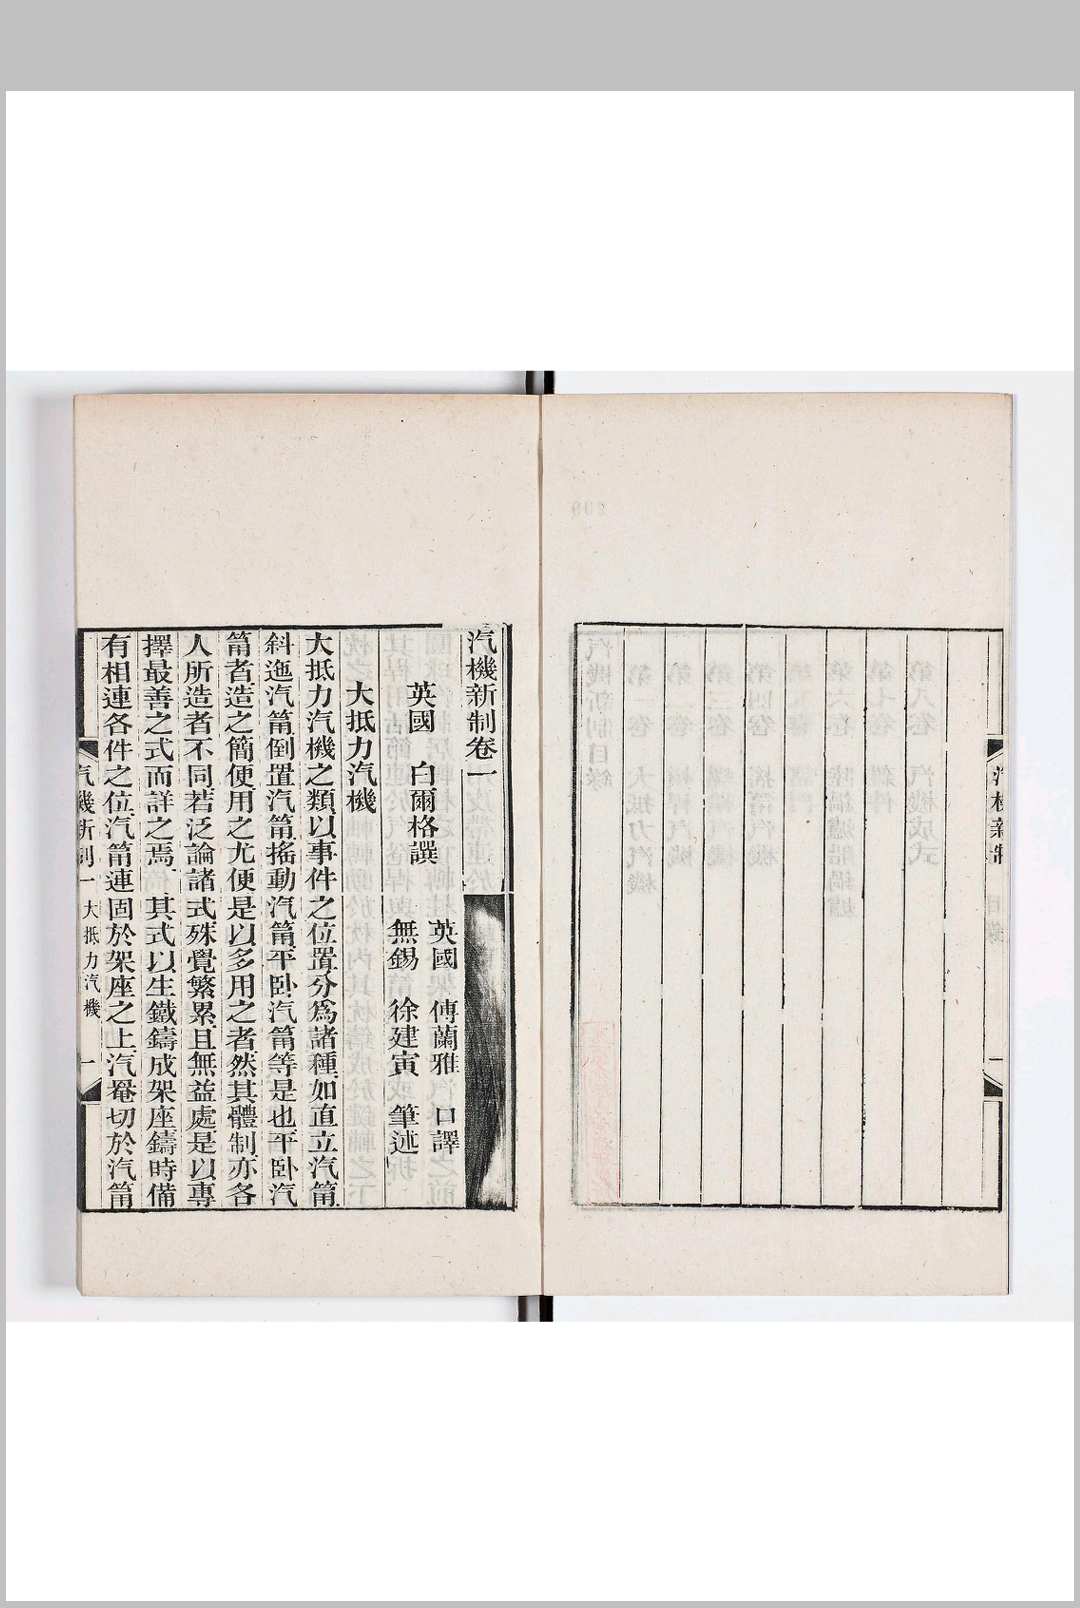 汽機新制卷一
英國　白爾格譔
英國　傅蘭雅　口譯
無錫　徐建寅　筆述
大抵力汽機
大抵力汽機之類以事件之位置分爲諸種如直立汽筩
斜迤汽筩倒置汽筩搖動汽筩平卧汽筩等是也平卧汽
筩者造之簡便用之尤便是以多用之者然其體制亦各
人所造者不同若泛論諸式殊覺繁累且無益處是以專
擇最善之式而詳之焉　其式以生鐵鑄成架座鑄時備
有相連各件之位汽筩連固於架座之上汽罨切於汽筩
汽機新制一　大抵力汽機　一